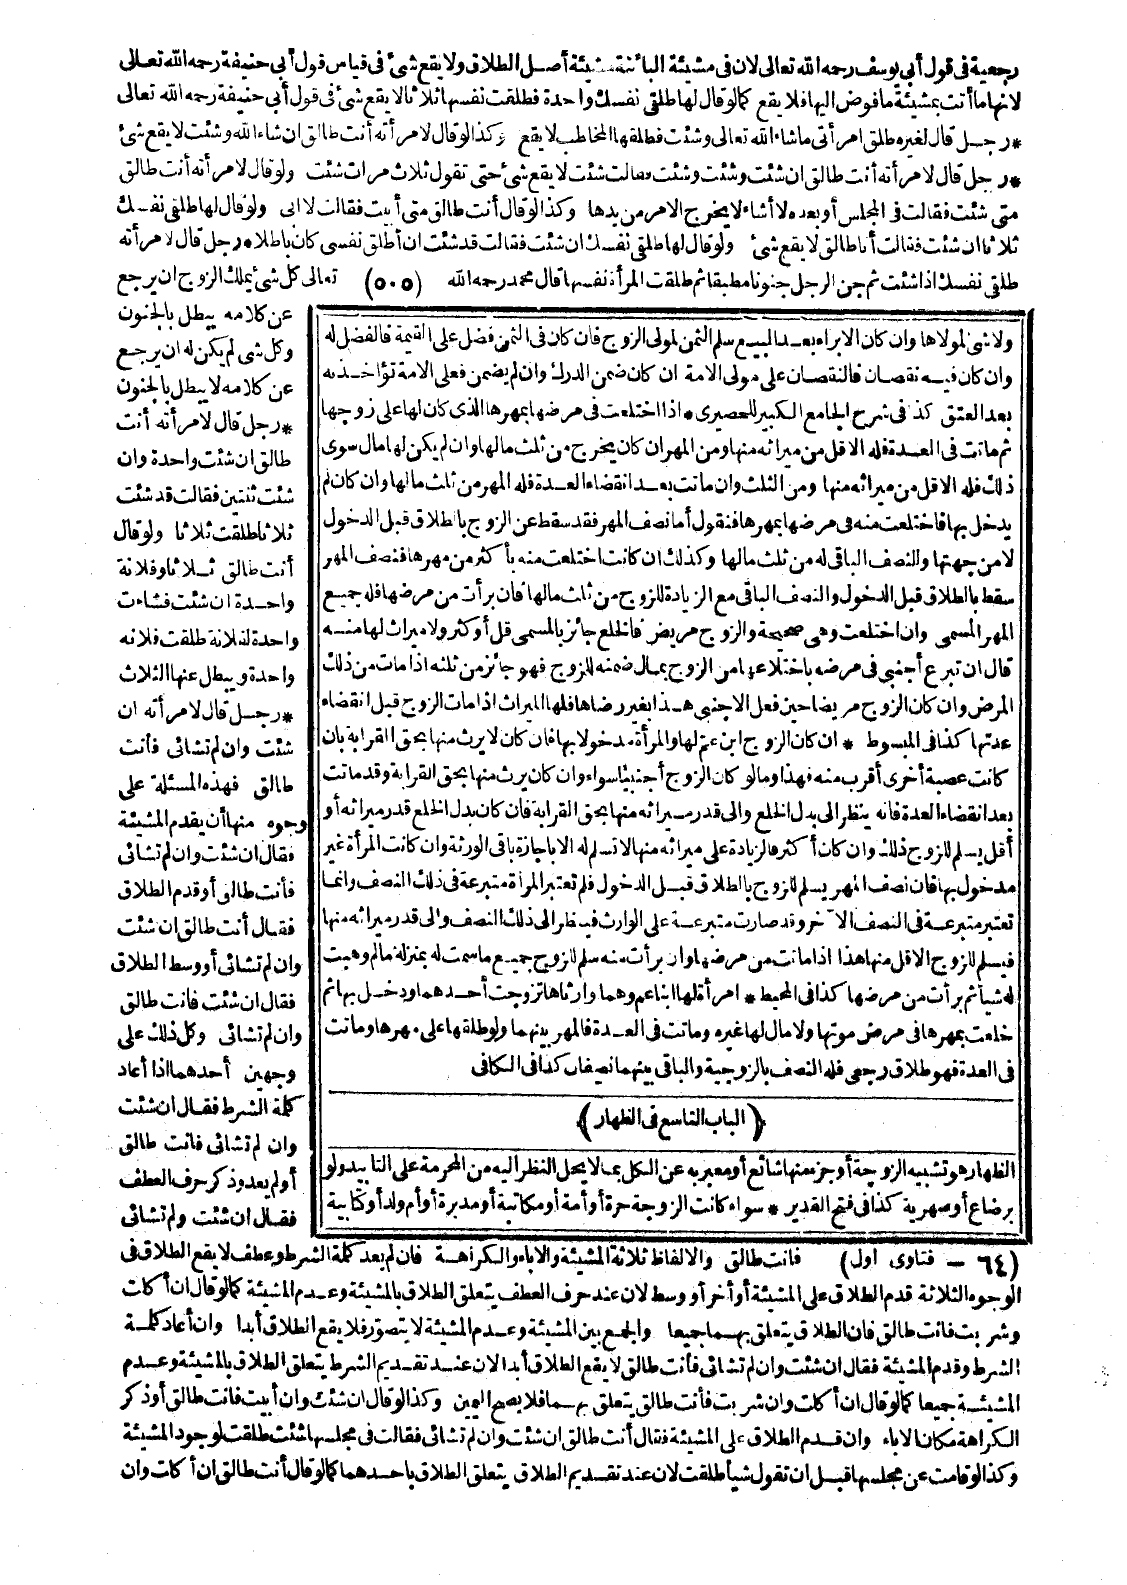 رجعية فى قول أبى يوسف رحمه الله تعالى لان فى مشيئة البائنة مشيئة أصل الطلاق ولا يقع شئ فى قياس قول أبى حنيفة رحمه الله تعالى
لانها ما أتت بمشيئة ما فوض اليها فلا يقع كما لو قال لها طلقى نفسك واحدة فطلقت نفسها ثلاثا لا يقع شئ فى قول أبى حنيفة رحمه الله تعالى
* رجل قال لغيره طلق امرأتى ما شاء الله تعالى وشئت فطلقها المخاطب لا يقع وكذا لو قال لامرأته أنت طالق ان شاء الله وشئت لا يقع شئ
* رجل قال لامرأته أنت طالق ان شئت وشئت وشئت فقالت شئت لا يقع شئ حتى تقول ثلاث مرات شئت ولو قال لامرأته أنت طالق
متى شئت فقالت فى المجلس أو بعده لا أشاء لا يخرج الامر من يدها وكذا لو قال أنت طالق متى أبيت فقالت لا ابى ولو قال لها طلقى نفسك
ثلاثا ان شئت فقالت أنا طالق لا يقع شئ ولو قال لها طلقى نفسك ان شئت فقالت قد شئت ان أطلق نفسى كان باطلا * رجل قال لامرأته
طلقى نفسك اذا شئت ثم جن الرجل جنونا مطبقا ثم طلقت المرأة نفسها قال محمد رحمه الله (٥٠٥) تعالى كل شئ يملك الزوج ان يرجع
عن كلامه يبطل بالجنون
وكل شى لم يكن له ان يرجع
عن كلامه لا يبطل بالجنون
* رجل قال لامرأته أنت
طالق ان شئت واحدة وان
شئت ثنتين فقالت قد شئت
ثلاثا طلقت ثلاثا ولو قال
أنت طالق ثلاثا وفلانة
واحدة ان شئت فشاءت
واحدة لفلانة طلقت فلانه
واحدة ويبطل عنها الثلاث
* رجل قال لامرأته ان
شئت وان لم تشائى فأنت
طالق فهذه المسئلة على
وجوه منها أن يقدم المشيئة
فقال ان شئت وان لم تشائى
فأنت طالق أو قدم الطلاق
فقال أنت طالق ان شئت
وان لم تشائى أو وسط الطلاق
فقال ان شئت فانت طالق
وان لم تشائى وكل ذلك على
وجهين أحدهما اذا أعاد
كلمة الشرط فقال ان شئت
وان لم تشائى فانت طالق
أو لم يعد وذكر حرف العطف
فقال ان شئت ولم تشائى
ولا شئ لمولاها وان كان الابراء بعد البيع سلم الثمن لمولى الزوج فان كان فى الثمن فضل على القيمة فالفضل له
وان كان فيه نقصان فالنقصان على مولى الامة ان كان ضمن الدرك وان لم يضمن فعلى الامة تؤاخذ به
بعد العتق كذا فى شرح الجامع الكبير للحصيرى * اذا اختلعت فى مرضها بمهرها الذى كان لها على زوجها
ثم ماتت فى العدة فله الاقل من ميراثه منها ومن المهر ان كان يخرج من ثلث مالها وان لم يكن لها مال سوى
ذلك فله الاقل من ميراثه منها ومن الثلث وان ماتت بعد انقضاء العدة فله المهر من ثلث مالها وان كان لم
يدخل بها فاختلعت منه فى مرضها بمهرها فنقول أما نصف المهر فقد سقط عن الزوج بالطلاق قبل الدخول
لا من جهتها والنصف الباقى له من ثلث مالها وكذلك ان كانت اختلعت منه بأكثر من مهرها فنصف المهر
سقط بالطلاق قبل الدخول والنصف الباقى مع الزيادة للزوج من ثلث مالها فان برأت من مرضها فله جميع
المهر المسمى وان اختلعت وهى صحيحة والزوج مريض فالخلع جائز بالمسمى قل أو كثر ولا ميراث لها منه
قال ان تبرع أجنبى فى مرضه باختلاعها من الزوج بمال ضمنه للزوج فهو جائز من ثلثه اذا مات من ذلك
المرض وان كان الزوج مريضا حين فعل الاجنبى هذا بغير رضاها فلها الميراث اذا مات الزوج قبل انقضاء
عدتها كذا فى المبسوط * ان كان الزوج ابن عم لها والمرأة مدخولا بها فان كان لا يرث منها بحق القرابة بان
كانت عصبة أخرى أقرب منه فهذا وما لو كان الزوج أجنبيا سواء وان كان يرث منها بحق القرابة وقد ماتت
بعد انقضاء العدة فانه ينظر الى بدل الخلع والى قدر ميراثه منها بحق القرابة فان كان بدل الخلع قدر ميراثه أو
أقل يسلم للزوج ذلك وان كان أكثر فالزيادة على ميراثه منها لا تسلم له الا باجازة باقى الورثة وان كانت المرأة غير
مدخول بها فان نصف المهر يسلم للزوج بالطلاق قبل الدخول فلم تعتبر المرأة متبرعة فى ذلك النصف وانما
تعتبر متبرعة فى النصف الآخر وقد صارت متبرعة على الوارث فينظر الى ذلك النصف والى قدر ميراثه منها
فيسلم للزوج الاقل منها هذا اذا ماتت من مرضها وان برأت منه سلم للزوج جميع ما سمت له بمنزلة ما لو وهبت
له شيأ ثم برأت من مرضها كذا فى المحيط * امرأة لها ابنا عم وهما وارثاها تزوجت أحدهما ودخل بها ثم
خلعت بمهرها فى مرض موتها ولا مال لها غيره وماتت فى العدة فالمهر بينهما ولو طلقها على مهرها وماتت
فى العدة فهو طلاق رجعى فله النصف بالزوجية والباقى بينهما نصفان كذا فى الكافى
(الباب التاسع فى الظهار)
الظهار هو تشبيه الزوجة أو جزء منها شائع أو معبر به عن الكل بما لا يحل النظر اليه من المحرمة على التأبيد ولو
برضاع أو صهرية كذا فى فتح القدير * سواء كانت الزوجة حرة أو أمة أو مكاتبة أو مدبرة أو أم ولد أو كتابية
(٦٤ - فتاوى اول) فانت طالق والالفاظ ثلاثة المشيئة والاباء والكراهة فان لم يعد كلمة الشرط وعطف لا يقع الطلاق فى
الوجوه الثلاثة قدم الطلاق على المشيئة أو أخر أو وسط لان عند حرف العطف يتعلق الطلاق بالمشيئة وعدم المشيئة كما لو قال ان أكلت
وشربت فانت طالق فان الطلاق يتعلق بهما جميعا والجمع بين المشيئة وعدم المشيئة لا يتصور فلا يقع الطلاق أبدا وان أعاد كلمة
الشرط وقدم المشيئة فقال ان شئت وان لم تشائى فأنت طالق لا يقع الطلاق أبدا لان عند تقديم الشرط يتعلق الطلاق بالمشيئة وعدم
المشيئة جميعا كما لو قال ان أكلت وان شربت فأنت طالق يتعلق بهما فلا يصح اليمين وكذا لو قال ان شئت وان أبيت فانت طالق أو ذكر
الكراهة مكان الاباء وان قدم الطلاق على المشيئة فقال أنت طالق ان شئت وان لم تشائى فقالت فى مجلسها شئت طلقت لوجود المشيئة
وكذا لو قامت عن مجلسها قبل ان تقول شيأ طلقت لان عند تقديم الطلاق يتعلق الطلاق باحدهما كما لو قال أنت طالق ان أكلت وان